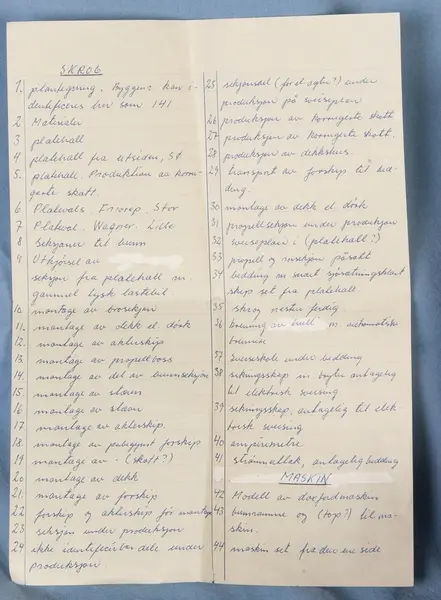 SKROG
1. plantegning. Byggenr kan i-
dentificeres her som 141
2 Materialer
3 platehall
4 platehall fra utsiden, St.
5. platehall. Produktion av korru-
gerte skott.
6 Platevals. Stor
7 Platevals. Wagner. Lille
8 Seksjoner til bunn
9 Utkjørsel av
seksjon fra platehall m.
gammel tysk lastebil.
10. montage av broskjon
11. montage av dekk el. dørk
12. montage av akterskip
13 montage av propellboss
14. montage av del av bunnseksjon
15. montage av stavn
16 montage av stavn
17 montage av akterskip.
18. montage av påbegynt forskip
19 montage av - (skott?)
20 montage av dekk
21. montage av forskip
22 forskip og akterskip før montage
23 seksjon under produksjon
24 ikke identificerbar dele under
produksjon
25 seksjonsdel (for el. agter?) under
produksjon på sveiseplan
26 produksjon av korrugerte skott
27 produksjon av korrugerte skott.
28 produksjon av dekkshus.
29 transport av forskip til bed-
ding.
30 montage av dekk el dørk
31 propellseksjon under produksjon
32 sveiseplan i (platehall?)
33 propell og påsatt
34 bedding m snart sjøsetningsklart
skip set fra platehall.
35 skrog nesten ferdig.
36 brenning av hull m. automatiske
brennere
37 Sveiseskole under bedding
38 sikringsskap m bryter antagelig
til elektrisk sveising
39 sikringsskap, antagelig til elek-
trisk sveising
40 ampèremetre
41 strømuttak, antagelig bedding
MASKIN
42 Modell av doxfordmaskin
43 bunnramme og (top?) til ma-
skin.
44 maskin set fra den ene side